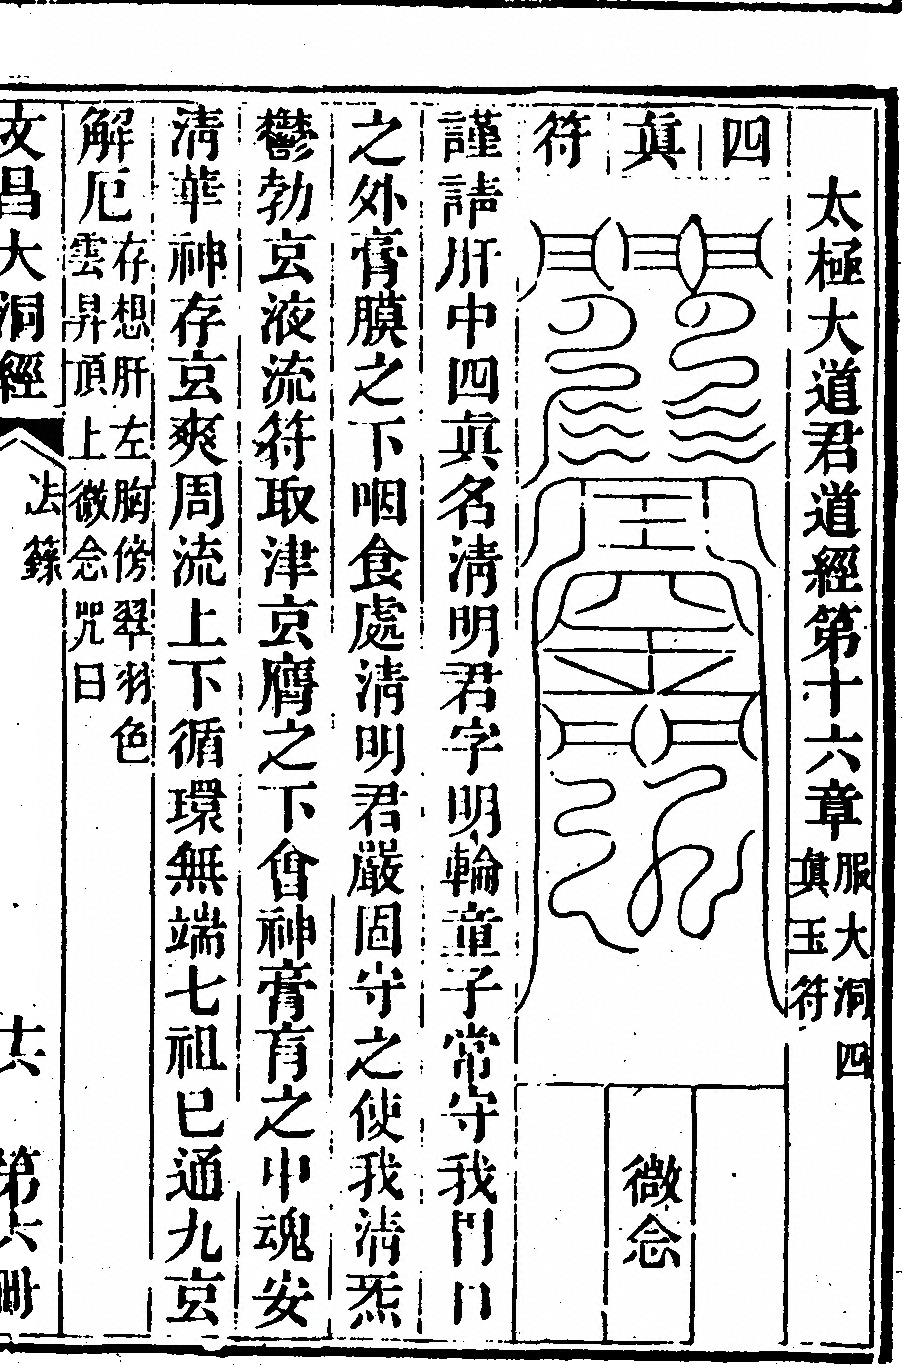 太極大道君道經第十六章 服大洞四
眞玉符
四眞符
微念
謹請肝中四眞名淸明君字明輪童子常守我門口
之外膏膜之下咽食處淸明君嚴固守之使我淸炁
鬱勃玄液流符取津玄膺之下會神膏肓之中魂安
淸華神存玄爽周流上下循環無端七祖已通九玄
解厄 存想肝左胸傍翠羽色
雲昇頂上微念咒曰
文昌大洞經
法籙
十六
第六冊